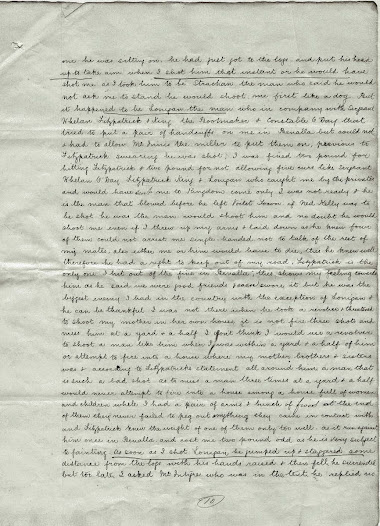 one he was sitting on he had just got to the logs and put his head
up to take aim when I shot him that instant or he would have
shot me as I took him to be Strachan the man who said he would
not ask me to stand he would shoot me first like a dog. But
it happened to be Lonigan the man who in company with Sergeant
Whelan Fitzpatrick & King the Bootmaker & Constable O'Day that
tried to put a pair of handcuffs on me in Benalla but could not
& had to allow McInnis the miller to put them on, previous to
Fitzpatrick swearing he was shot, I was fined two pound for
hitting Fitzpatrick & two pound for not allowing five curs like Sergeant
Whelan O'Day Fitzpatrick King & Lonigan who caught me by the privates
and would have sent me to Kingdom come only I was not ready & he
is the man that blowed before he left Violet Town if Ned Kelly was to
be shot he was the man would shoot him and no doubt he would
shoot me even if I threw up my arms & laid down as he knew four
of them could not arrest me single handed not to talk of the rest of
my mates, also either me or him would have to die, this he knew well
therefore he had a right to keep out of my road, Fitzpatrick is the
only one I hit out of the five in Benalla, this shows my feeling towards
him as he said we were good friends & even swore it but he was the
biggest enemy I had in the country with the exception of Lonigan &
he can be thankful I was not there when he took a revolver & threatened
to shoot my mother in her own house it is not fire three shots and
miss him at a yard & a half I dont think I would use a revolver
to shoot a man like him when I was within a yard & a half of him
or attempt to fire into a house where my mother brothers & sisters
was & according to Fitzpatricks statement all around him a man that
is such a bad shot as to miss a man three times at a yard & a half
would never attempt to fire into a house among a house full of women
and children while I had a pair of arms & bunch of fives on the end
of them they never failed to peg out anything they came in contact with
and Fitzpatrick knew the weight of one of them only too well as it run against
him once in Benalla and cost me two pound odd as he is very subject
to fainting. As soon as I shot Lonigan he jumped up & staggered some
distance from the logs with his hands raised & then fell, he surrendered
but too late I asked McIntyre who was in the tent he replied no